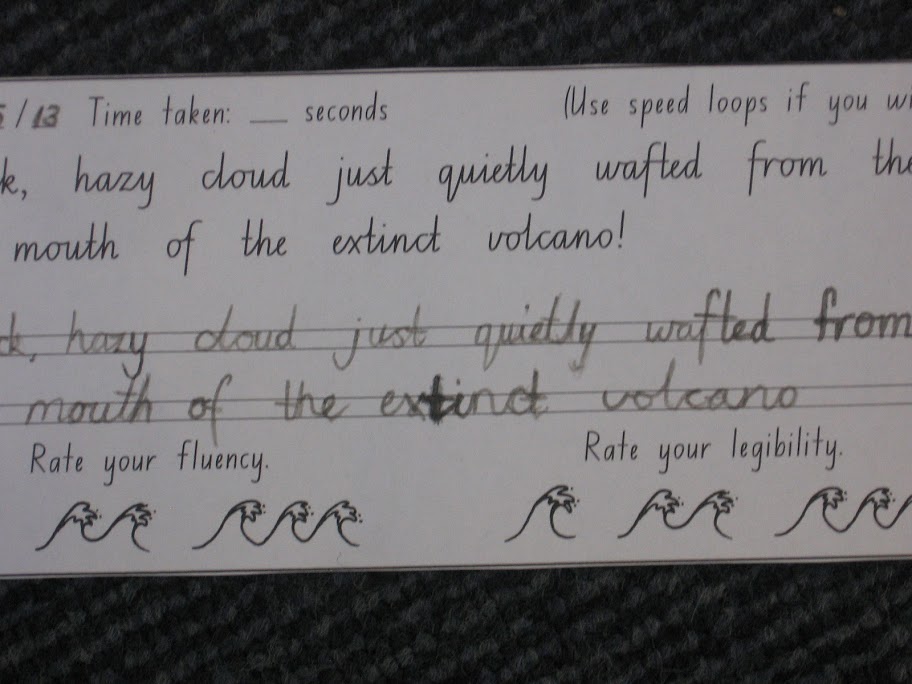 /13 Time taken: __ seconds (Use speed loops if you
k, hazy cloud just quietly wafted from the
mouth of the extinct volcano!
ck, hazy cloud just quietly wafted from
mouth of the extinct volcano
Rate your fluency. Rate your legibility.